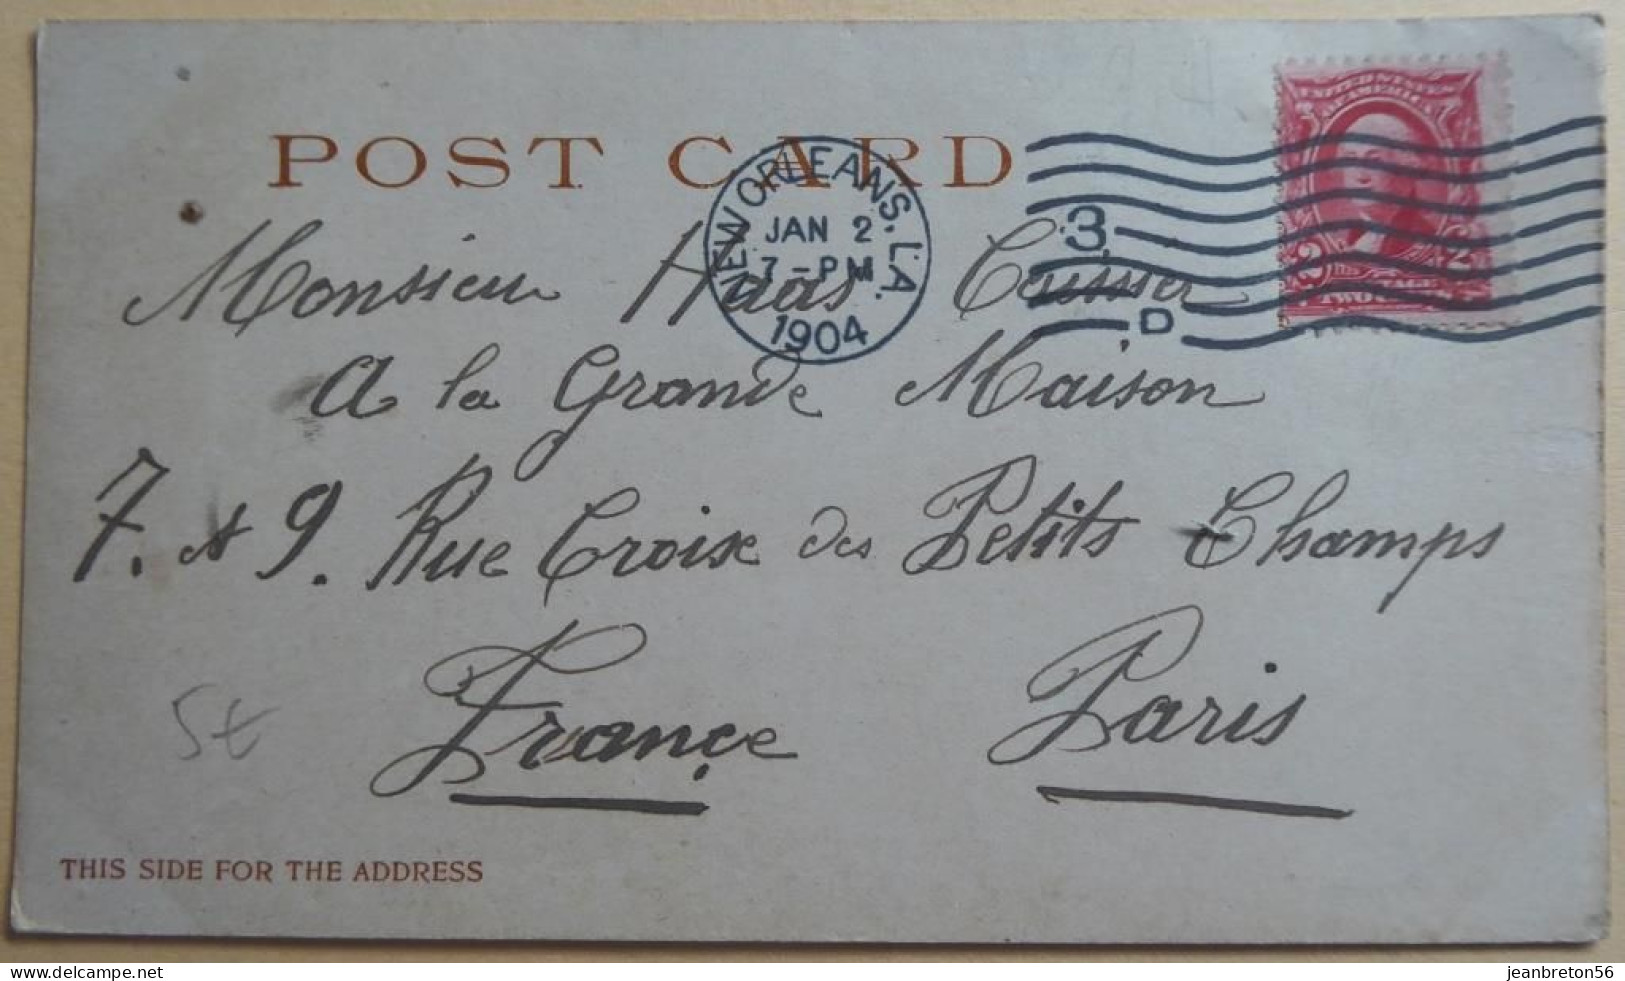 POST CARD
NEW ORLEANS, LA.
JAN 2
7-PM
1904
3
D
UNITED STATES
OF AMERICA
2 2
POSTAGE
TWO
Monsieur Haas Caissier
A la Grande Maison
7. & 9. Rue Croix des Petits Champs
France Paris
5t
THIS SIDE FOR THE ADDRESS
delcampe.net
jeanbreton56